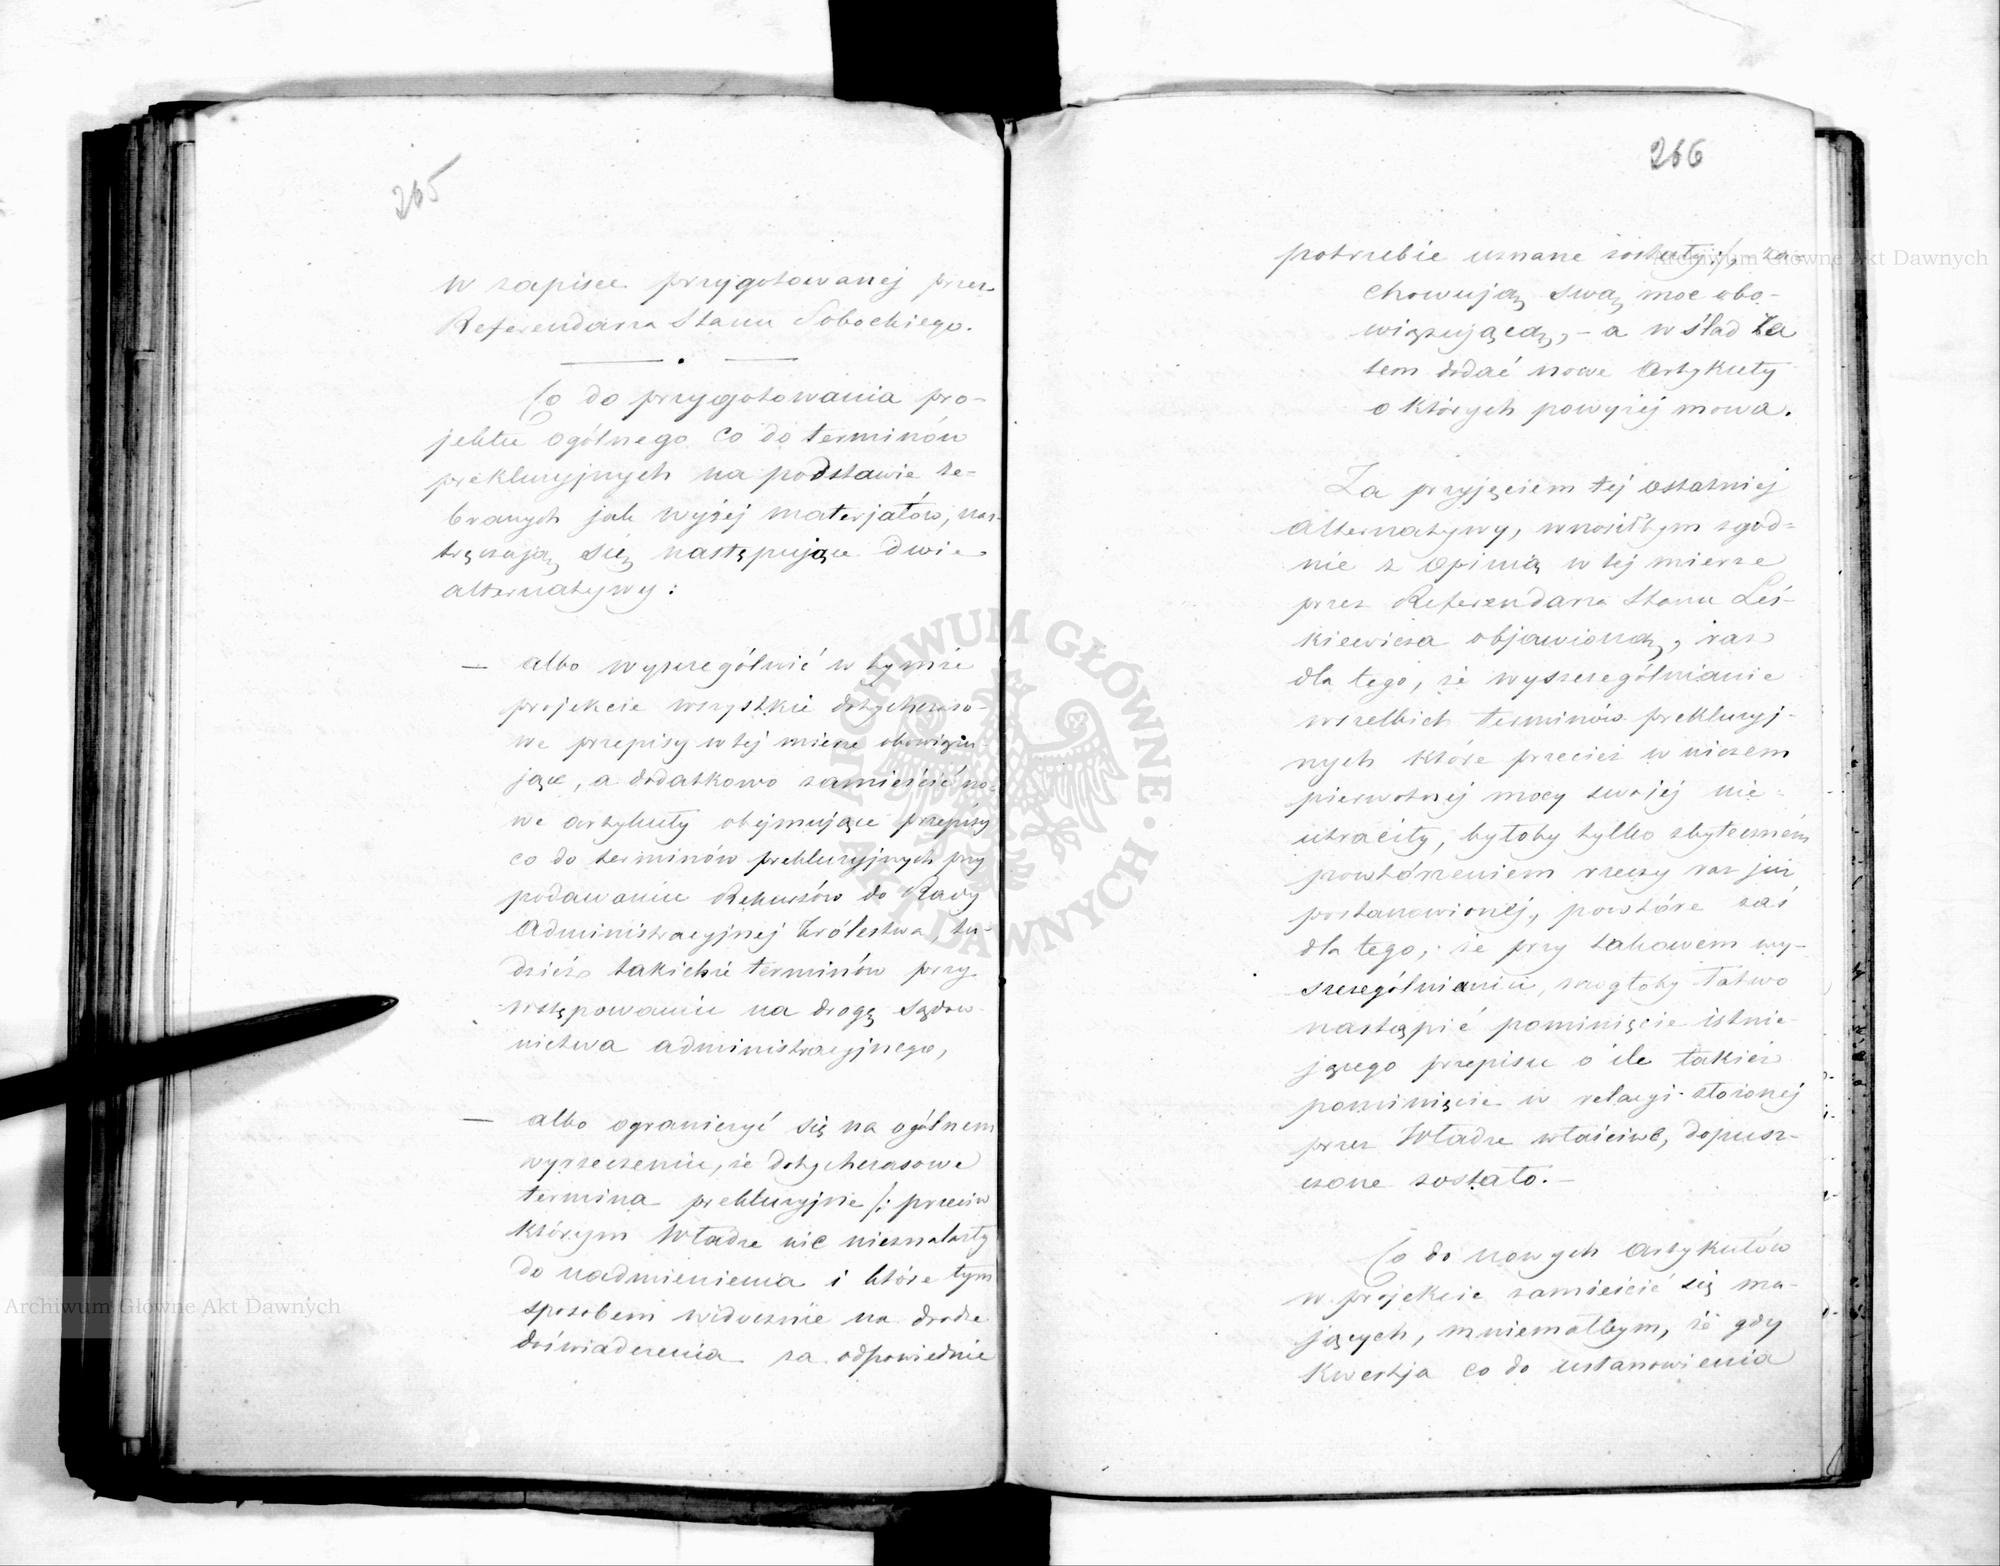 265
w zapisce przygotowanej przez
Referendarza Stanu Sobockiego.
Co do przygotowania pro-
jektu ogólnego co do terminów
prekluzyjnych na podstawie ze-
branych jak wyżej materjałów, nas-
tręczają się następujące dwie
alternatywy:
— albo wyszczególnić w tymże
projekcie wszystkie dotychczaso-
we przepisy w tej mierze obowiązu-
jące, a dodatkowo zamieścić no-
we artykuły obejmujące przepisy
co do terminów prekluzyjnych przy
podawaniu Rekursów do Rady
Administracyjnej Królestwa, tu-
dzież takichże terminów przy
wstępowaniu na drogę sądow-
nictwa administracyjnego,
— albo ograniczyć się na ogólnem
wyrzeczeniu, że dotychczasowe
termina prekluzyjne /: przeciw
którym Władze nic nieznalazły
do nadmienienia i które tym
sposobem widocznie na drodze
doświadczenia za odpowiednie
266
potrzebie uznane zostały :/, za-
chowują swą moc obo-
wiązującą, – a w ślad za
tem dodać nowe artykuły
o których powyżej mowa.
Za przyjęciem tej ostatniej
alternatywy, wnosiłbym zgod-
nie z opinią w tej mierze
przez Referendarza Stanu Leś-
kiewicza objawioną, raz
dla tego, że wyszczególnianie
wszelkich terminów prekluzyj-
nych które przecież w niczem
pierwotnej mocy swojej nie-
utraciły, byłoby tylko zbyteczném
powtórzeniem rzeczy raz już
postanowionej, powtóre zaś
dla tego, że przy takowem wy-
szczególnianiu, mogłoby łatwo
nastąpić pominięcie istnie-
jącego przepisu o ile takież
pominięcie w relacyi złożonej
przez Władze właściwe, dopusz-
czone zostało. –
Co do nowych artykułów
w projekcie zamieścić się ma-
jących, mniemałbym, że gdy
Kwestja co do ustanowienia
Archiwum Główne Akt Dawnych
ARCHIWUM GŁÓWNE
AKT DAWNYCH
Archiwum Główne Akt Dawnych